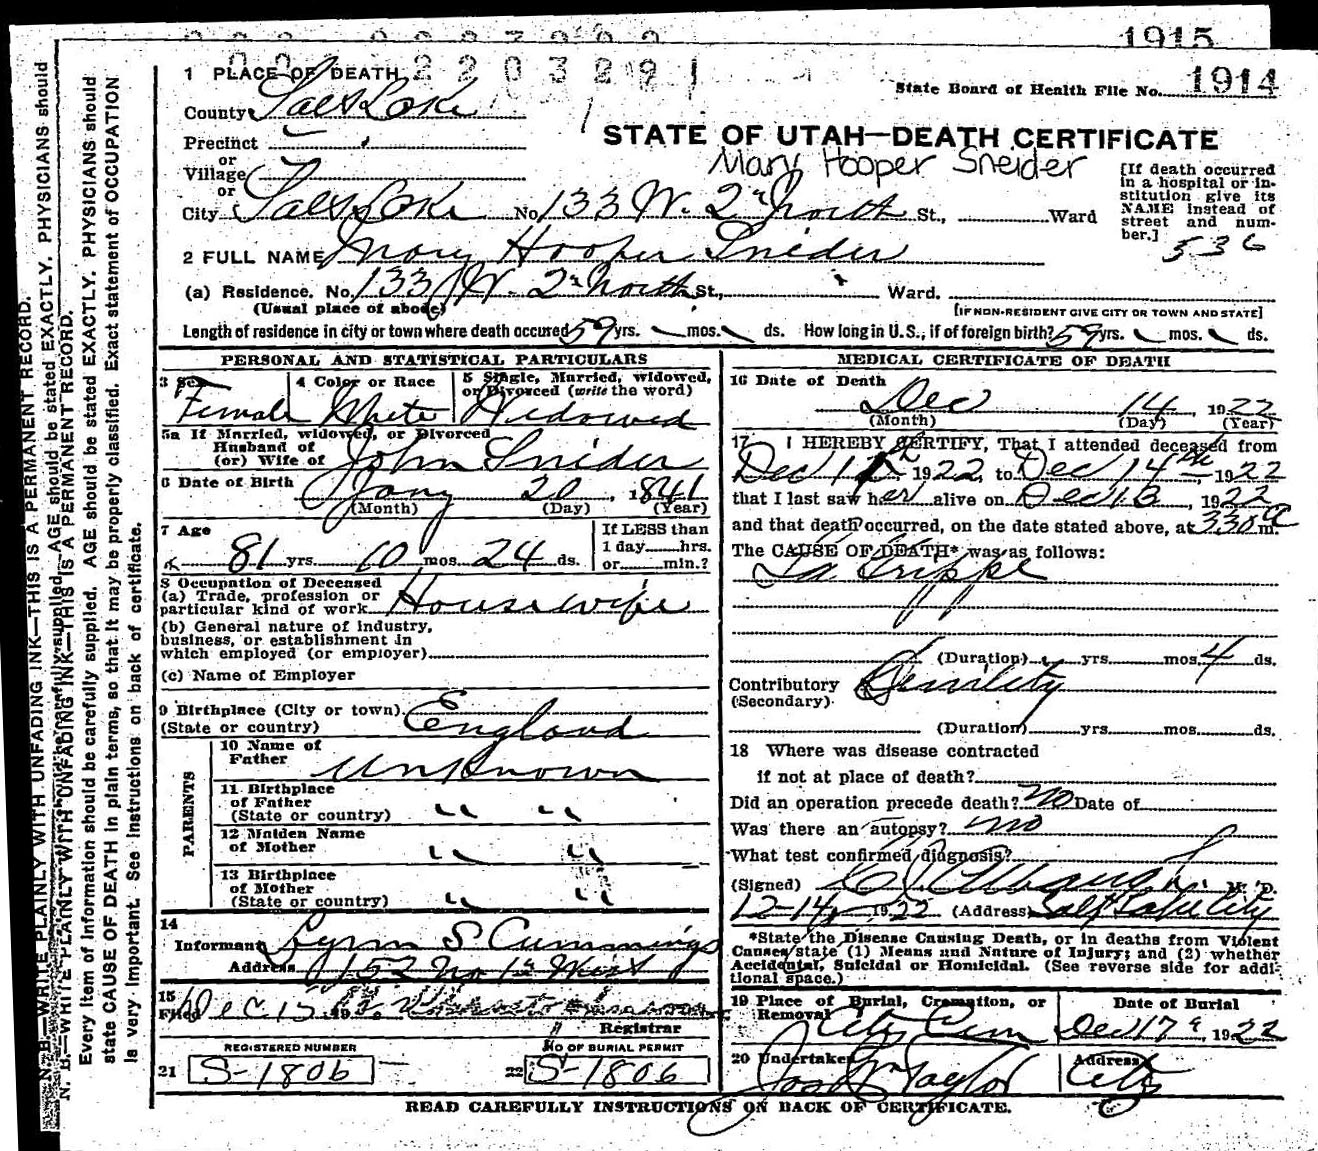 1915
220329
1 PLACE OF DEATH
State Board of Health File No. 1914
County Salt Lake
STATE OF UTAH—DEATH CERTIFICATE
Precinct
Mary Hooper Sneider
or
Village
or
City Salt Lake No 133 W. 2nd North St., Ward
[If death occurred in a hospital or in-
stitution give its
NAME instead of
street and num-
ber.]
536
2 FULL NAME Mary Hooper Snider
(a) Residence. No. 133 W. 2nd North St., Ward.
(Usual place of abode) [IF NON-RESIDENT GIVE CITY OR TOWN AND STATE]
Length of residence in city or town where death occured 59 yrs. mos. ds. How long in U.S., if of foreign birth? 59 yrs. mos. ds.
PERSONAL AND STATISTICAL PARTICULARS
3 Sex Female
4 Color or Race White
5 Single, Married, widowed,
or Divorced (write the word)
Widowed
5a If Married, widowed, or Divorced
Husband of
(or) Wife of John Snider
6 Date of Birth Jany 20, 1841
(Month) (Day) (Year)
7 Age
81 yrs. 10 mos. 24 ds.
If LESS than
1 day hrs.
or min.?
8 Occupation of Deceased
(a) Trade, profession or
particular kind of work Housewife
(b) General nature of industry,
business, or establishment in
which employed (or employer)
(c) Name of Employer
9 Birthplace (City or town)
(State or country) England
PARENTS
10 Name of
Father Unknown
11 Birthplace
of Father
(State or country) " "
12 Maiden Name
of Mother " "
13 Birthplace
of Mother
(State or country) " "
14
Informant Lynn S Cummings
Address 152 No 1st West
15
Filed Dec 15 19
Registrar
REGISTERED NUMBER
21 S-1806
NO OF BURIAL PERMIT
22 S-1806
MEDICAL CERTIFICATE OF DEATH
16 Date of Death
Dec 14, 1922
(Month) (Day) (Year)
17 I HEREBY CERTIFY, That I attended deceased from
Dec 1922 to Dec 14th, 1922
that I last saw her alive on Dec 13, 1922
and that death occurred, on the date stated above, at 330 a m.
The CAUSE OF DEATH* was as follows:
La Grippe
(Duration) yrs. mos. 4 ds.
Contributory Senility
(Secondary)
(Duration) yrs. mos. ds.
18 Where was disease contracted
if not at place of death?
Did an operation precede death? No Date of
Was there an autopsy? no
What test confirmed diagnosis?
(Signed) M. D.
12-14, 1922 (Address) Salt Lake City
*State the Disease Causing Death, or in deaths from Violent
Causes state (1) Means and Nature of Injury; and (2) whether
Accidental, Suicidal or Homicidal. (See reverse side for addi-
tional space.)
19 Place of Burial, Cremation, or
Removal City Cem
Date of Burial
Dec 17, 1922
20 Undertaker Jos Wm Taylor
Address City
READ CAREFULLY INSTRUCTIONS ON BACK OF CERTIFICATE.
N. B.—WRITE PLAINLY WITH UNFADING INK—THIS IS A PERMANENT RECORD.
Every item of information should be carefully supplied. AGE should be stated EXACTLY. PHYSICIANS should
state CAUSE OF DEATH in plain terms, so that it may be properly classified. Exact statement of OCCUPATION
is very important. See instructions on back of certificate.